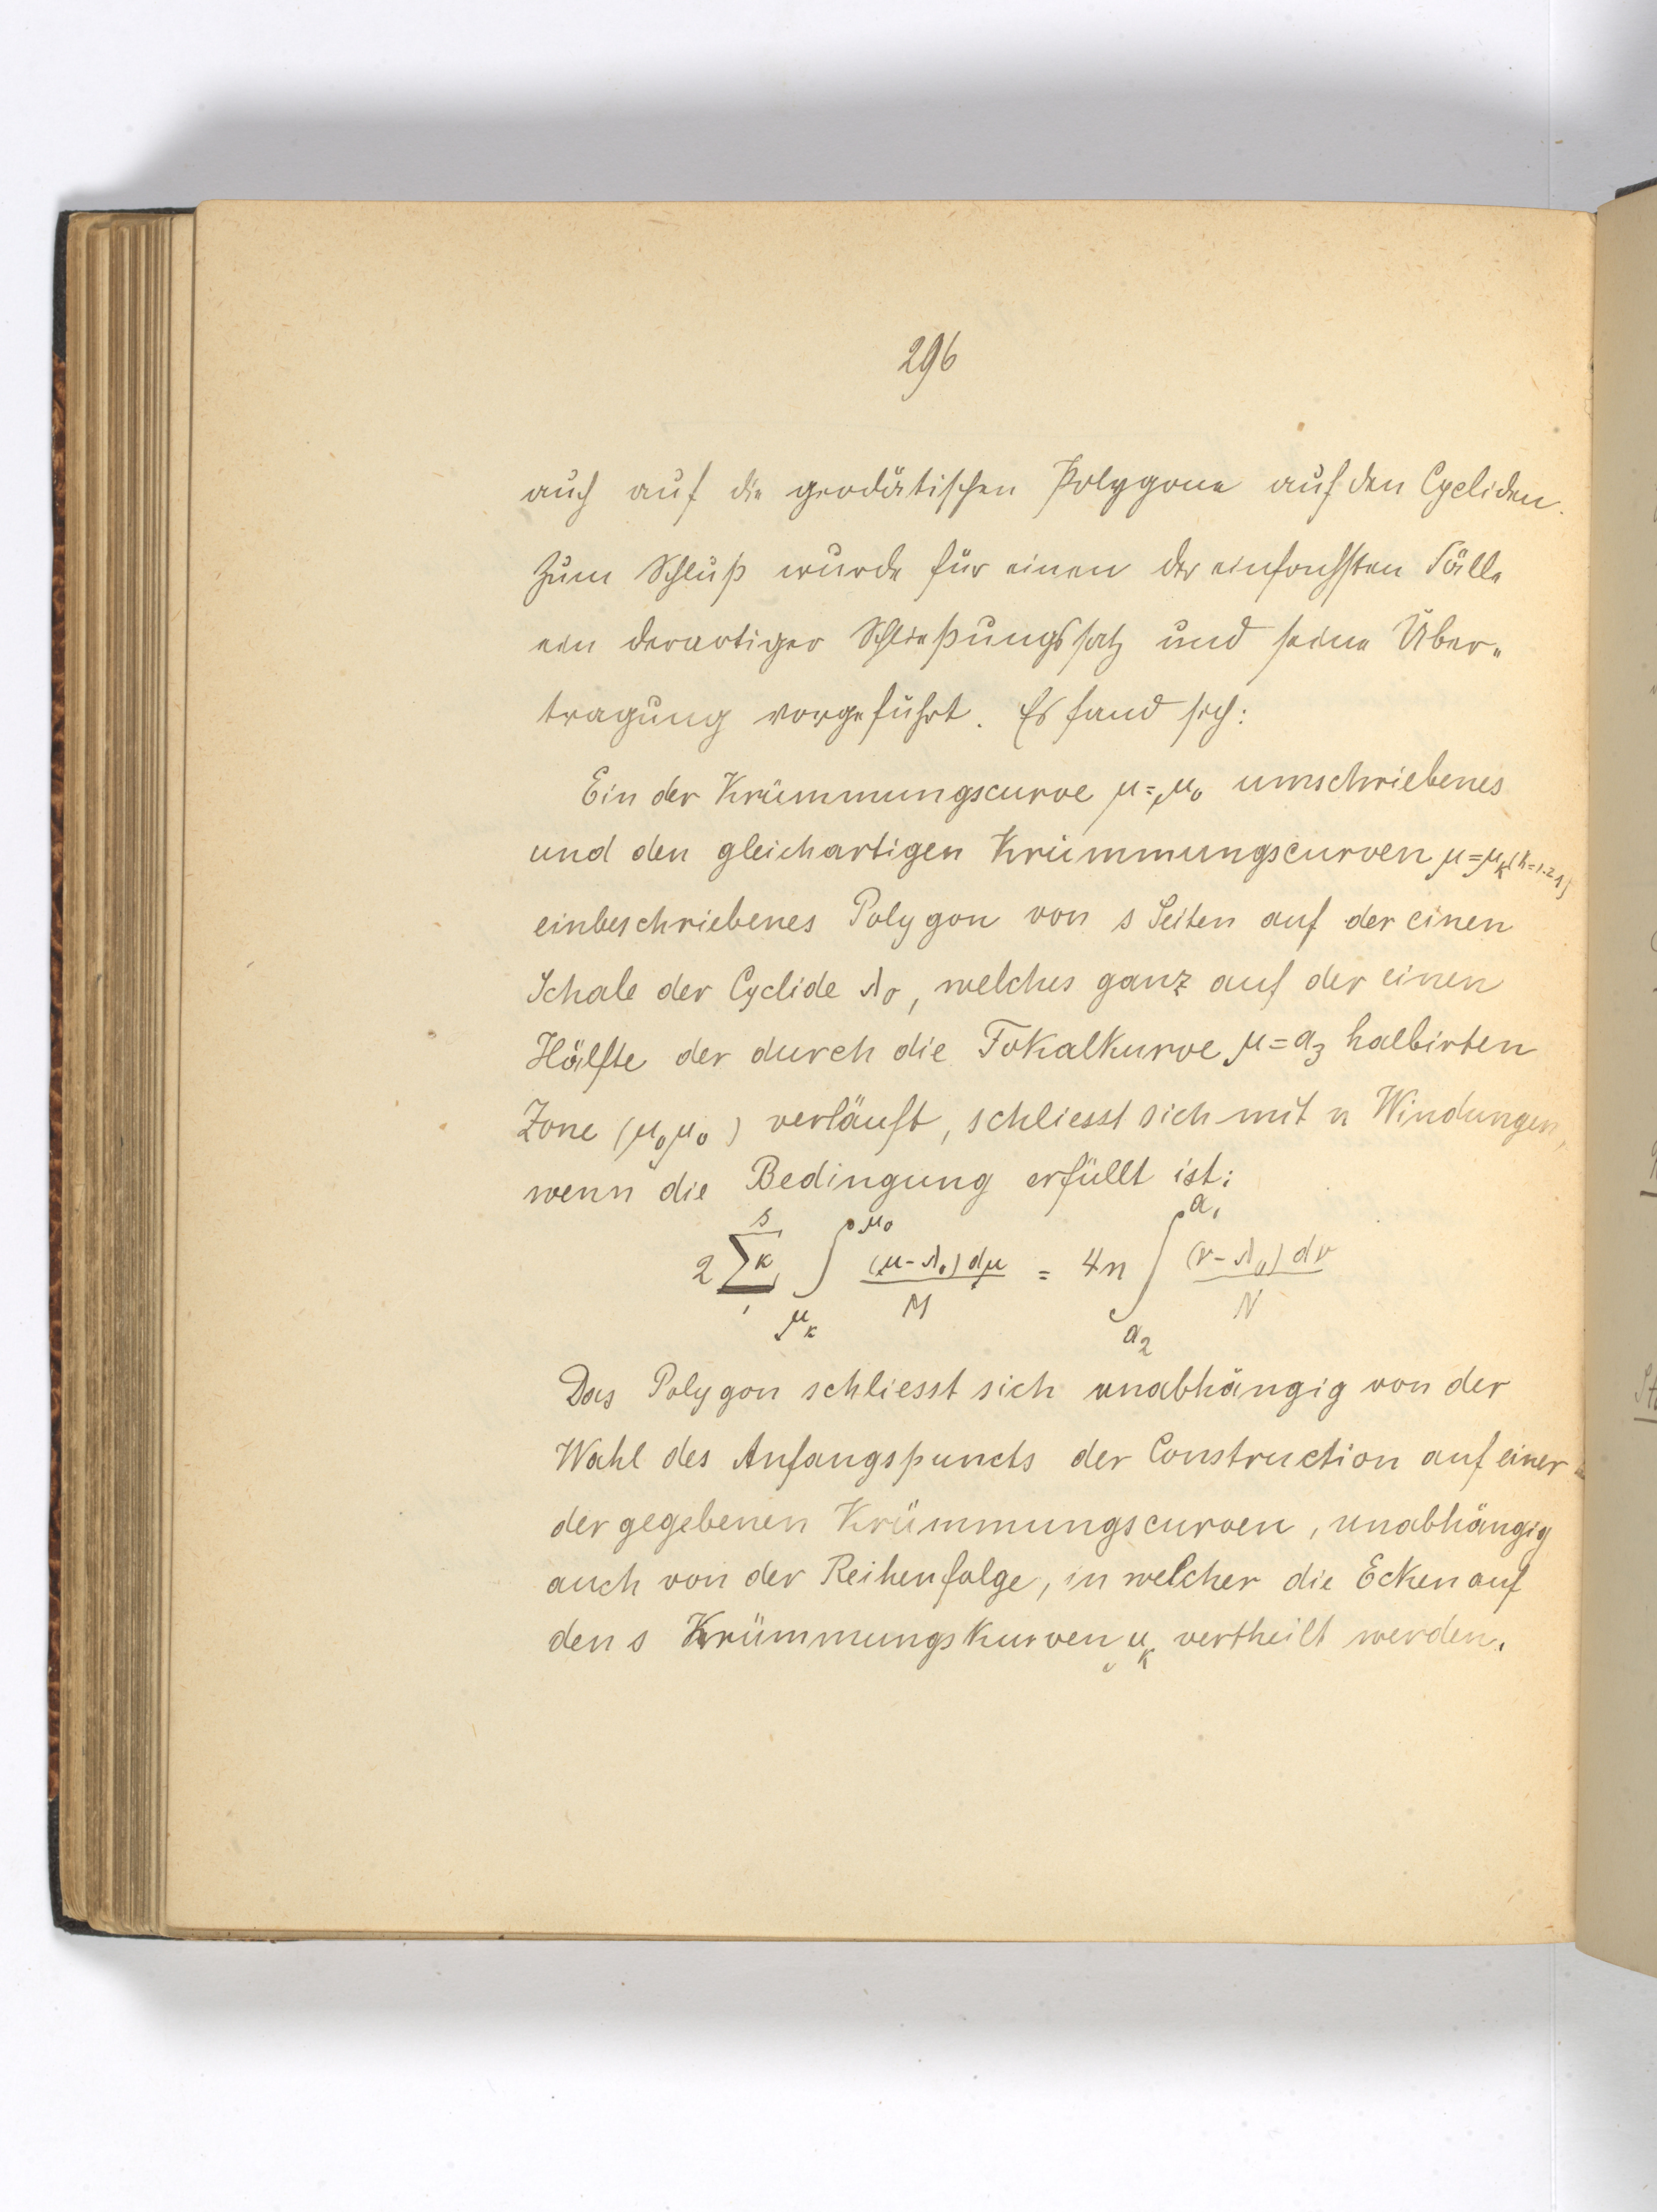 296
auch auf die geodätischen Polygone auf den Cycliden.
Zum Schluß wurde für einen der einfachsten Fälle
ein derartiger Schließungssatz und seine Über-
tragung vorgeführt. Es fand sich:
Ein der Krümmungscurve μ=μ₀ umschriebenes
und den gleichartigen Krümmungscurven μ=μₖ
einbeschriebenes Polygon von s Seiten auf der einen
Schale der Cyclide λ₀, welches ganz auf der einen
Hälfte der durch die Fokalkurve μ=a₃ halbirten
Zone (μ₀μ₀) verläuft, schliesst sich mit n Windungen,
wenn die Bedingung erfüllt ist:
2 ∑ₖ₁ˢ ∫_{μₖ}^{μ₀} (μ-λ₀)dμ / M = 4n ∫_{a₂}^{a₁} (ν-λ₀)dν / N
Das Polygon schliesst sich unabhängig von der
Wahl des Anfangspuncts der Construction auf einer
der gegebenen Krümmungscurven, unabhängig
auch von der Reihenfolge, in welcher die Ecken auf
den s Krümmungskurven μₖ vertheilt werden.